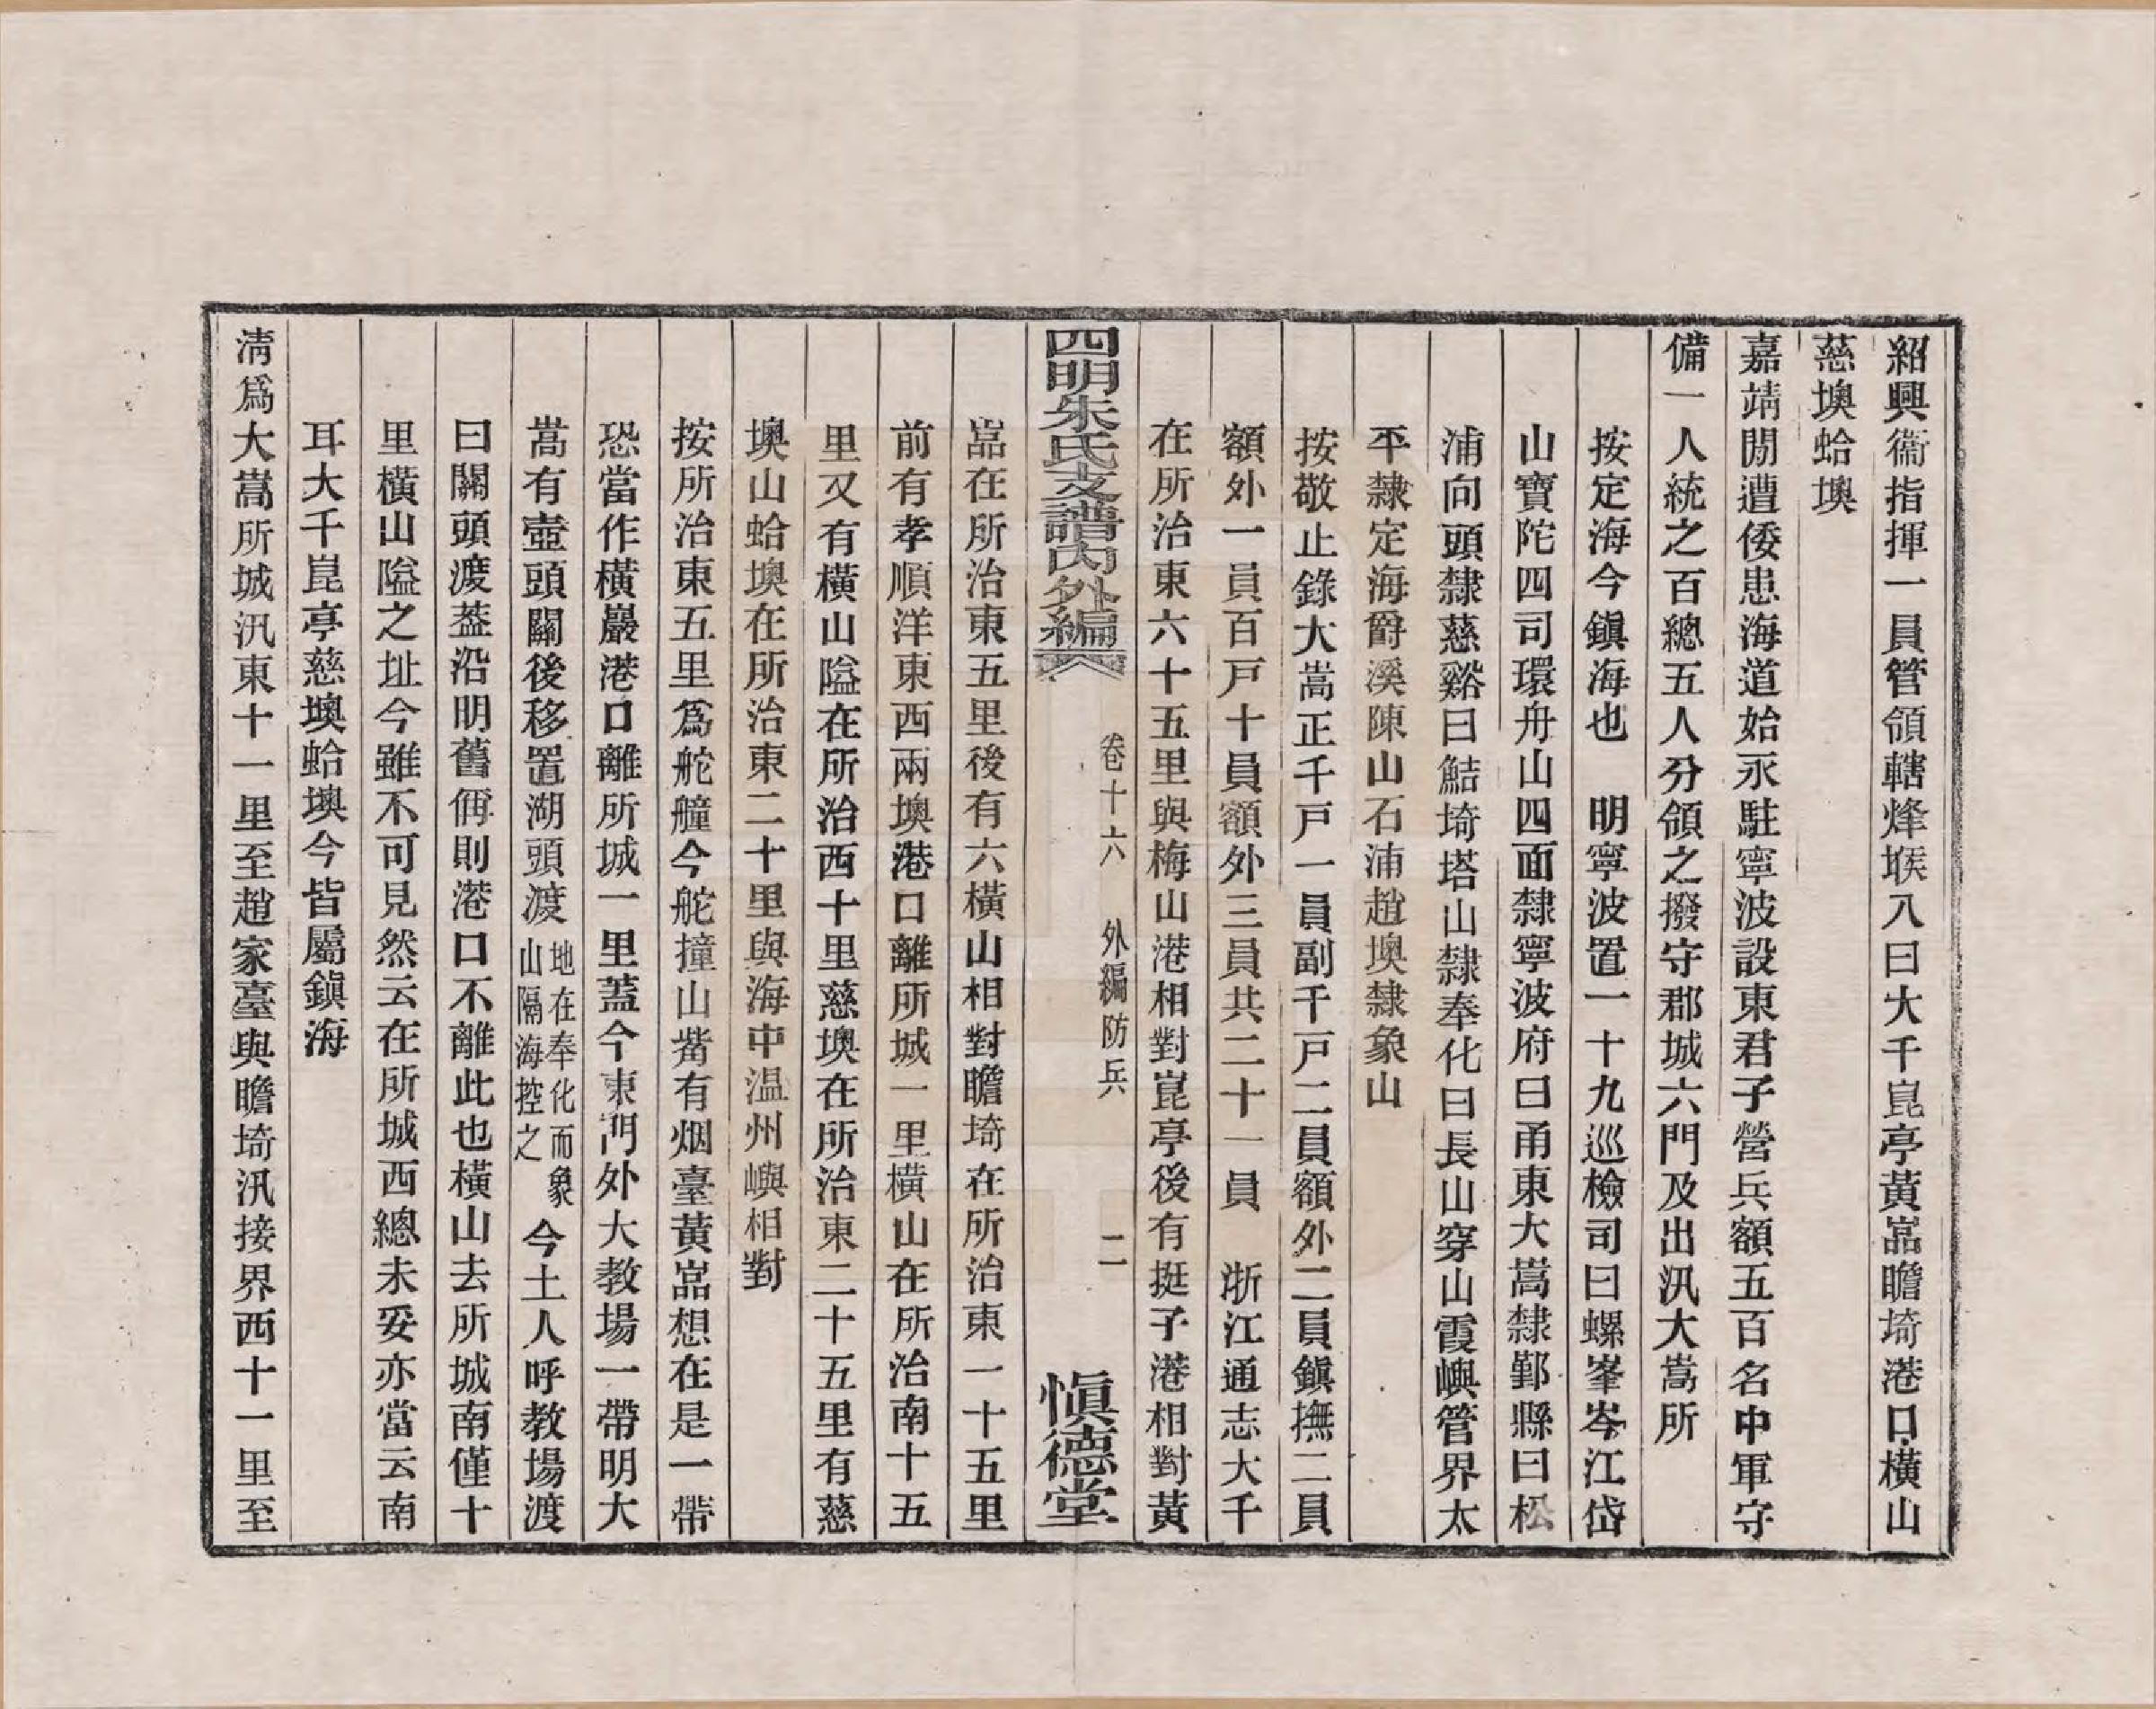 紹興衞指揮一員管領轄烽堠八曰大千崑亭黃嵓瞻埼港口橫山
慈墺蛤墺
嘉靖閒遭倭患海道始永駐寧波設東君子營兵額五百名中軍守
備一人統之百總五人分領之撥守郡城六門及出汛大嵩所
按定海今鎭海也　明寧波置一十九巡檢司曰螺峯岑江岱
山寶陀四司環舟山四面隸寧波府曰甬東大嵩隸鄞縣曰松
浦向頭隸慈谿曰鮚埼塔山隸奉化曰長山穿山霞嶼管界太
平隸定海爵溪陳山石浦趙墺隸象山
按敬止錄大嵩正千戸一員副千戸二員額外二員鎭撫二員
額外一員百戸十員額外三員共二十一員　浙江通志大千
在所治東六十五里與梅山港相對崑亭後有挺子港相對黃
四明朱氏支譜內外編
卷十六　外編防兵　二
愼德堂
嵓在所治東五里後有六橫山相對瞻埼在所治東一十五里
前有孝順洋東西兩墺港口離所城一里橫山在所治南十五
里又有橫山隘在所治西十里慈墺在所治東二十五里有慈
墺山蛤墺在所治東二十里與海中温州嶼相對
按所治東五里爲舵艟今舵撞山觜有烟臺黃嵓想在是一帶
恐當作橫巖港口離所城一里蓋今東門外大教場一帶明大
嵩有壺頭關後移置湖頭渡地在奉化而象山隔海控之今土人呼教場渡
曰關頭渡葢沿明舊偁則港口不離此也橫山去所城南僅十
里橫山隘之址今雖不可見然云在所城西總未妥亦當云南
耳大千崑亭慈墺蛤墺今皆屬鎭海
淸爲大嵩所城汛東十一里至趙家臺與瞻埼汛接界西十一里至